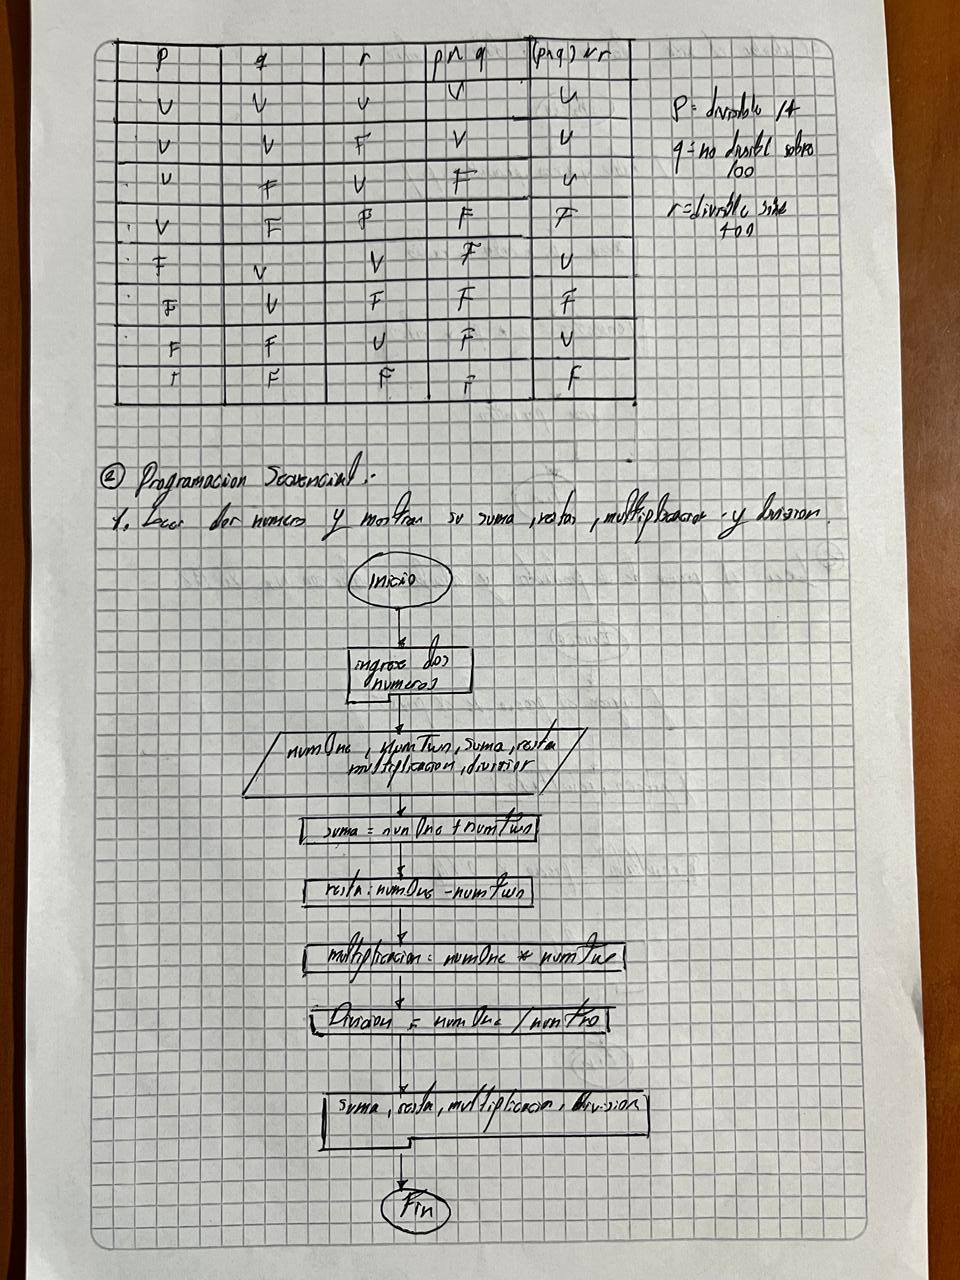 p q r p∧q (p∧q)∨r
V V V V V
V V F V V
V F V F V
V F F F F
F V V F V
F V F F F
F F V F V
F F F F F
P = divisible /4
q = no divisibl sobre
100
r = divisible sobre
400
② Programacion Secuencial:
1. Leer dos numeros y mostrar su suma, resta, multiplicacion y division.
Inicio
ingrese dos
numeros
numOne, numTwo, suma, resta
multiplicacion, division
suma = numOne + numTwo
resta = numOne - numTwo
multiplicacion = numOne * numTwo
Division = numOne / numTwo
suma, resta, multiplicacion, division
Fin